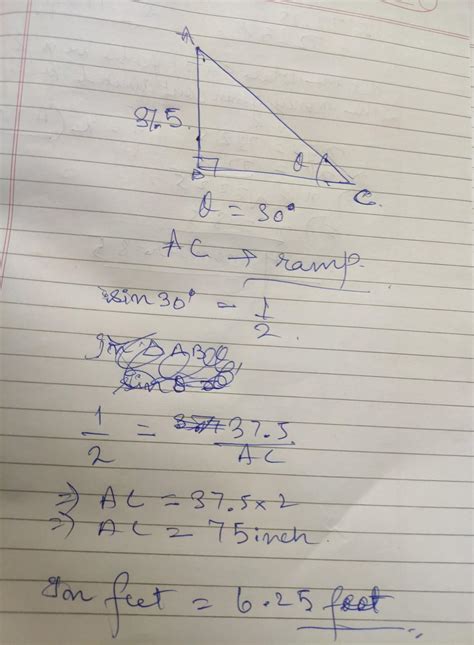 A
37.5
B
θ
C.
θ = 30°
AC → ramp.
sin 30° = 1/2.
In Δ ABC
sin θ =
1/2 = 37.5/AC
⇒ AC = 37.5 x 2
⇒ AC = 75 inch.
In feet = 6.25 foot